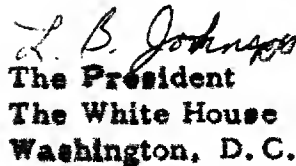 L. B. Johnson
The President
The White House
Washington, D. C.